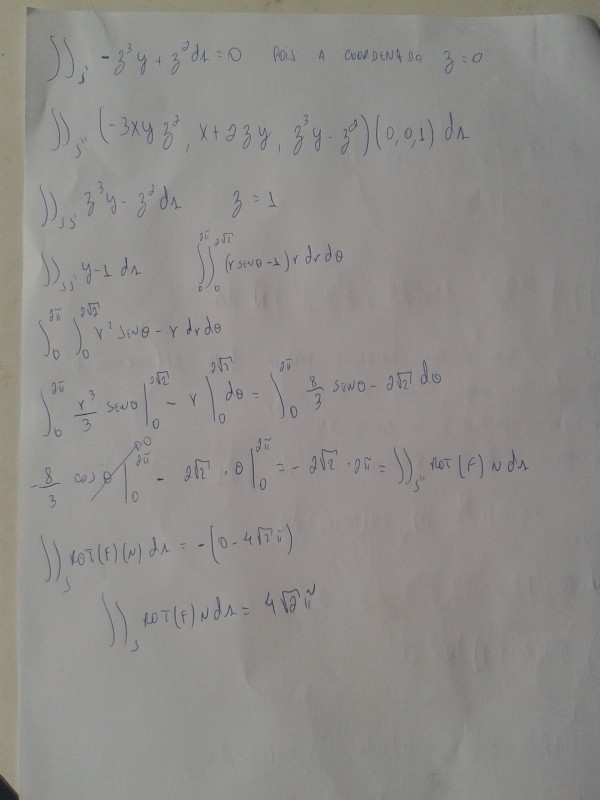 ∬_S' -z³y + z² ds = 0 POIS A COORDENADA z = 0
∬_S'' (-3xyz², x+2zy, z³y - z²)(0,0,1) ds
∬_S'' z³y - z² ds z = 1
∬_S'' y-1 ds ∫_0^2π ∫_0^2√2 (r senθ - 1) r dr dθ
∫_0^2π ∫_0^2√2 r² senθ - r dr dθ
∫_0^2π r³/3 senθ |_0^2√2 - r |_0^2√2 dθ = ∫_0^2π 8/3 senθ - 2√2 dθ
-8/3 cos θ |_0^2π →0 - 2√2 · θ |_0^2π = -2√2 · 2π = ∬_S'' ROT(F) N ds
∬_S ROT(F)(N) ds = -(0 - 4√2 π)
∬_S ROT(F) N ds = 4√2 π